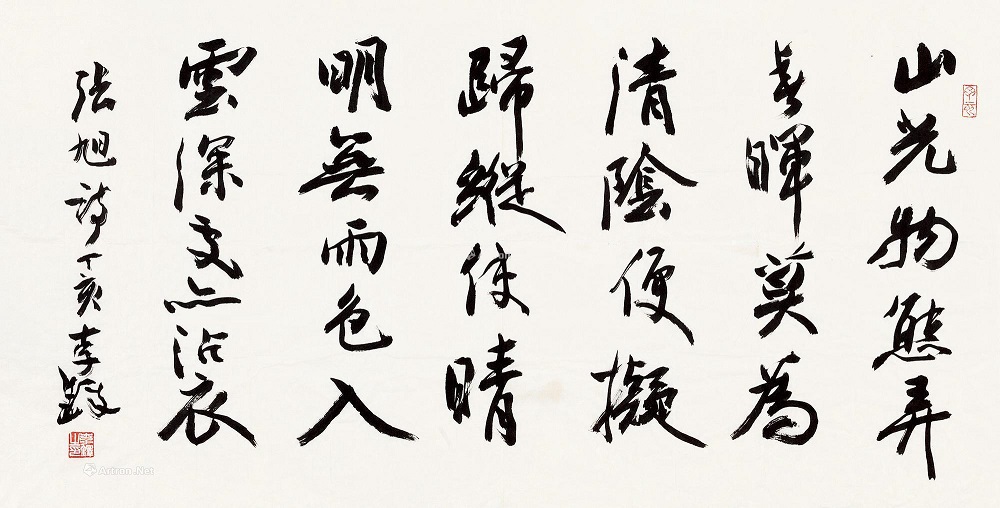 山光物態弄
春暉莫為
清陰便擬
歸縱使晴
明無雨色入
雲深處亦沾衣
張旭詩丁亥李鐸
Artron.Net